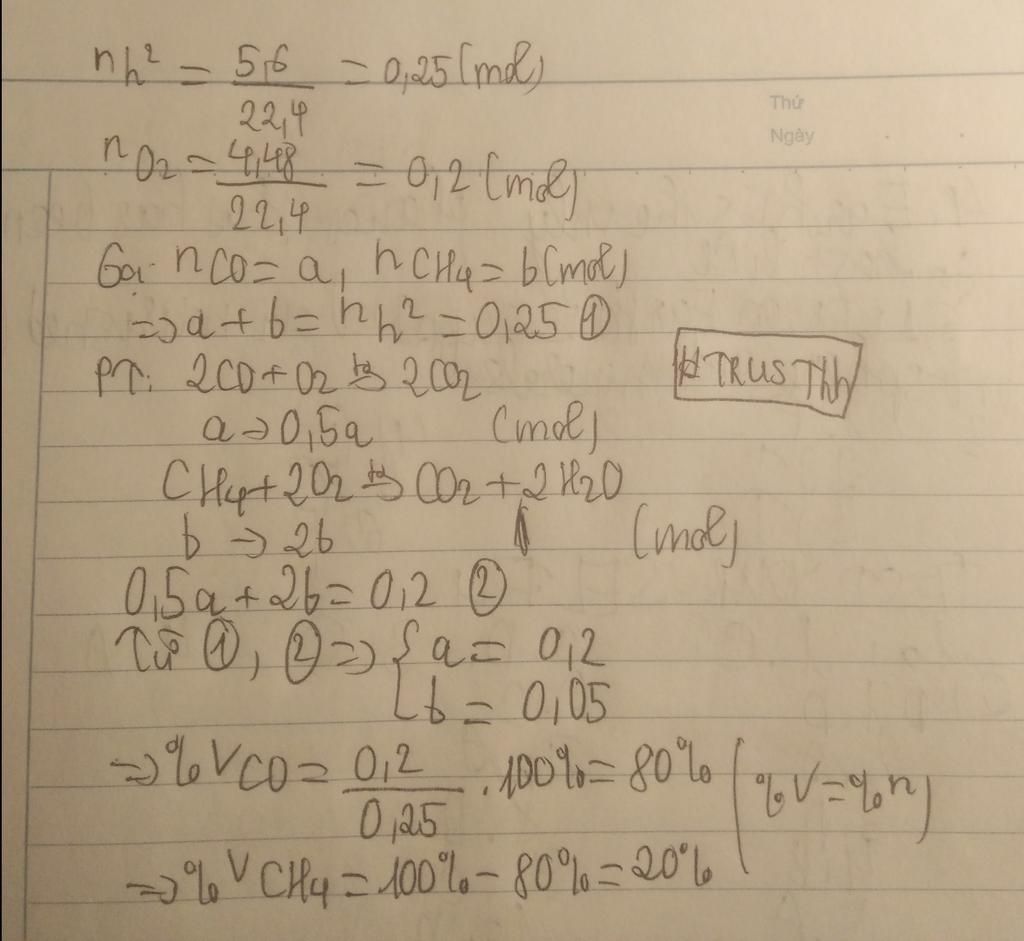 n h² = 5,6 / 22,4 = 0,25 (mol)
Thứ
Ngày
n O₂ = 4,48 / 22,4 = 0,2 (mol)
Gọi n CO = a, n CH₄ = b (mol)
=> a + b = n h² = 0,25 ①
PT: 2CO + O₂ t°→ 2CO₂
#TRUSTHh
a → 0,5a (mol)
CH₄ + 2O₂ t°→ CO₂ + 2H₂O
b → 2b (mol)
0,5a + 2b = 0,2 ②
Từ ①, ② => { a = 0,2
b = 0,05
=> % V CO = 0,2 / 0,25 . 100% = 80% (%V = %n)
=> % V CH₄ = 100% - 80% = 20%